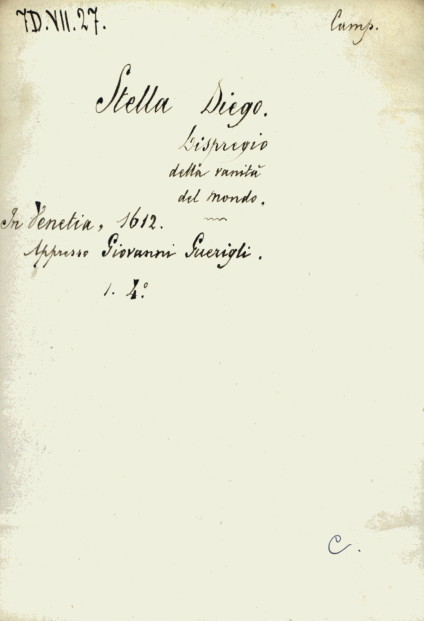 7D.VII.27.
Camp.
Stella Diego.
Dispregio
della vanità
del mondo.
In Venetia, 1612.
Appresso Giovanni Guerigli.
1. 4.°
C.